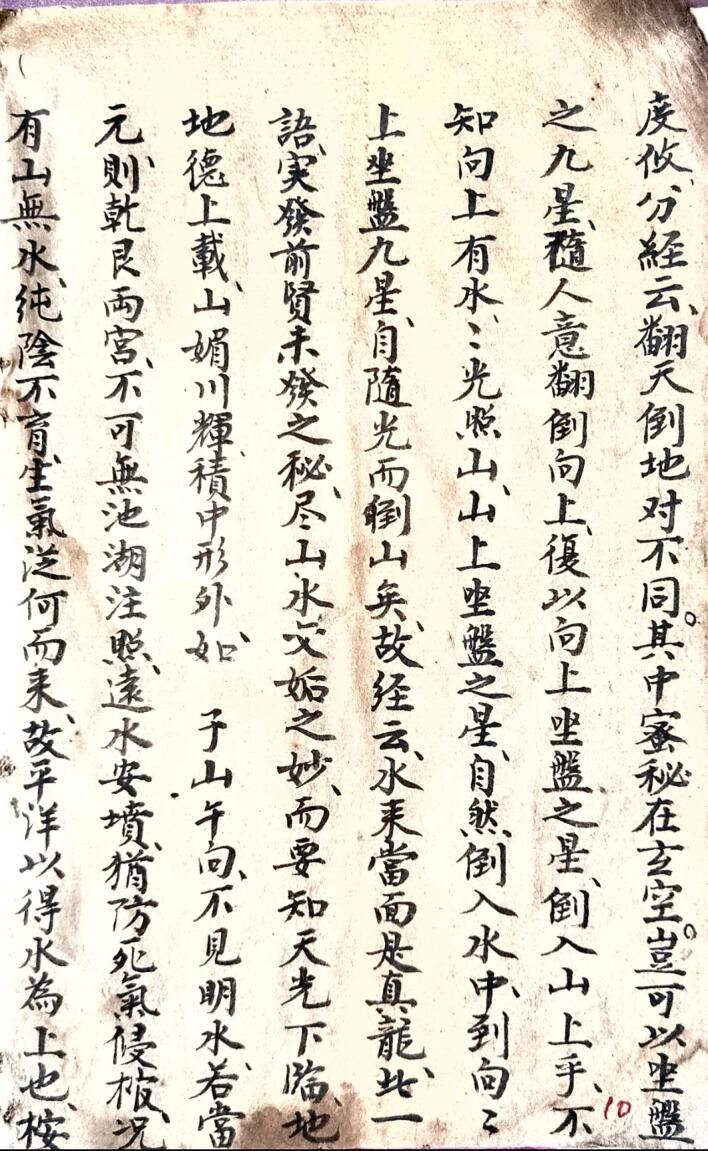 度攸、分經云、翻天倒地对不同。其中密秘在玄空。豈可以坐盤
之九星、隨人意翻倒向上、復以向上坐盤之星、倒入山上乎、不
知向上有水、〻光照山、山上坐盤之星、自然倒入水中、到向〻
上坐盤九星、自随光而倒山矣、故经云、水来當面是真龍、此一
語、实發前賢未發之秘、尽山水交姤之妙、而要知天光下臨、地
地德上載、山媚川輝、積中形外、如 子山午向、不見明水、若當
元、則乾艮両宮、不可無池湖注照、遠水安墳、猶防死氣侵棺、况
有山無水、純陰不育、生氣從何而来、故平洋以得水為上也、按
10